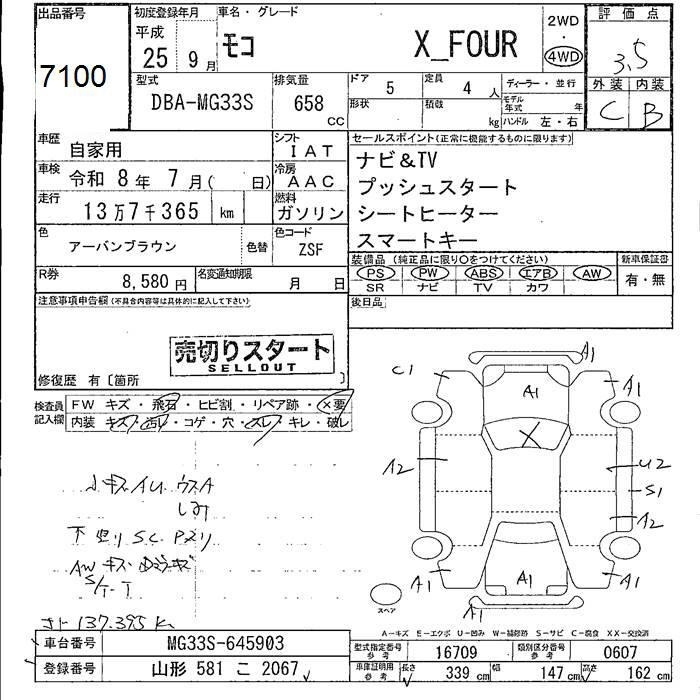 出品番号
7100
初度登録年月
平成
25 年 9 月
車名・グレード
モコ
X_FOUR
2WD
・
4WD
評価点
3.5
外装 内装
C B
型式
DBA-MG33S
排気量
658
CC
ドア 5
定員 4 人
形状
積載 kg
ディーラー・並行
モデル年式 年
ハンドル 左・右
車歴
自家用
シフト
IAT
車検
令和 8年 7月( 日)
冷房
AAC
走行
13万7千365 km
燃料
ガソリン
色
アーバンブラウン
色替
色コード
ZSF
R券
8,580円
名変通知期限
月 日
セールスポイント(正常に機能するものに限ります)
ナビ&TV
プッシュスタート
シートヒーター
スマートキー
装備品 (純正品に限り○をつけてください)
PS PW ABS エアB AW
SR ナビ TV カワ
新車保証書
有・無
後日品
注意事項申告欄(不具合内容等は具体的に記入して下さい)
売切りスタート
SELLOUT
修復歴 有〔箇所 〕
検査員記入欄
FW キズ・飛石・ヒビ割・リペア跡・×要
内装 キズ・汚レ・コゲ・穴・スレ・キレ・破レ
小キズ AU ウスA
しみ
下廻り SC. Pヌリ
AW キズ
S/T-T
137.395 K
C1
A1
A1
A1
X
A2
U2
S1
A2
A1
A1
A1
A1
スペア
A-キズ E-エクボ U-凹み W-補修跡 S-サビ C-腐食 XX-交換済
車台番号
MG33S-645903
登録番号
山形 581 こ 2067
型式指定番号
参考
16709
類別区分番号
参考
0607
車庫証明用
参考
長さ 339 cm
幅 147 cm
高さ 162 cm